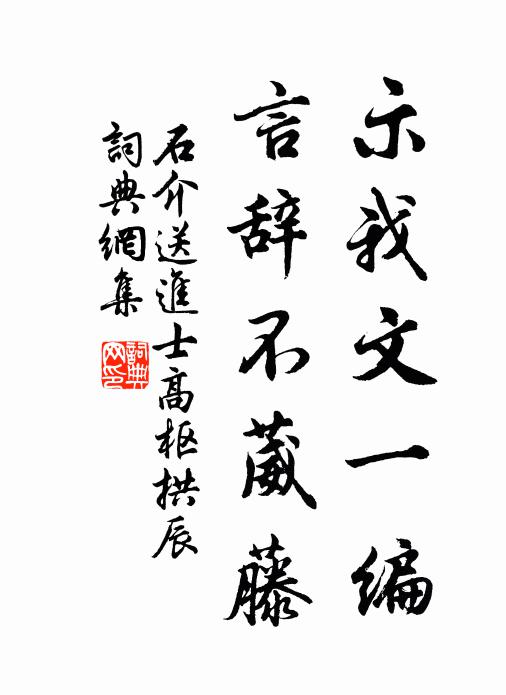 示我文一编
言辞不葳藤
石介送進士高枢拱辰
詞典網集
詞典网印